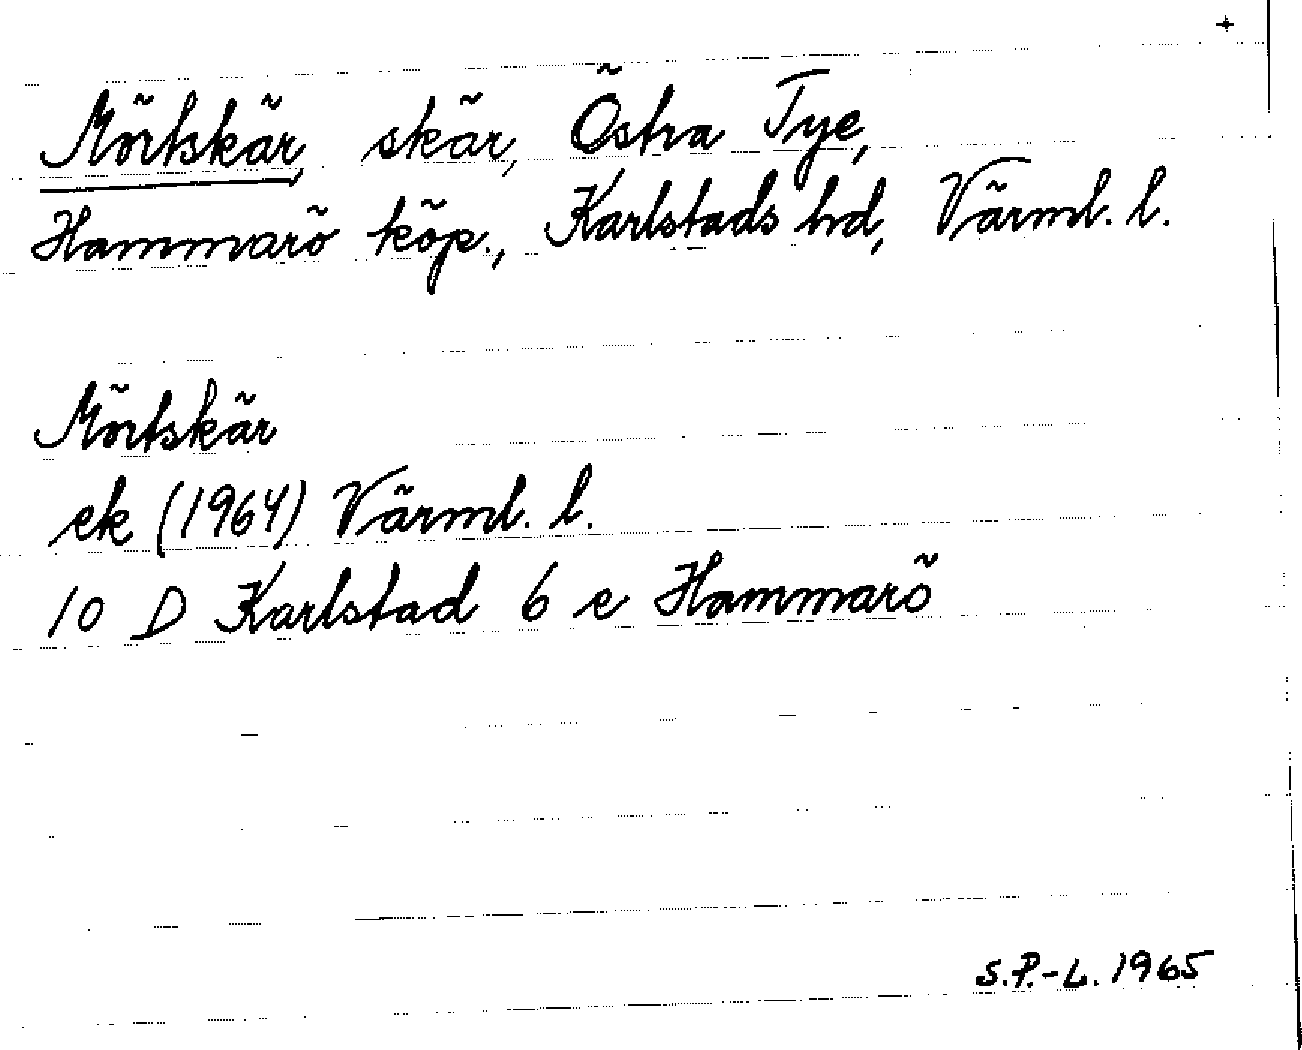 +
Mörtskär, skär, Östra Tye,
Hammarö köp., Karlstads hd, Värml. l.
Mörtskär
ek (1964) Värml. l.
10 D Karlstad 6 e Hammarö
S.P.-L. 1965